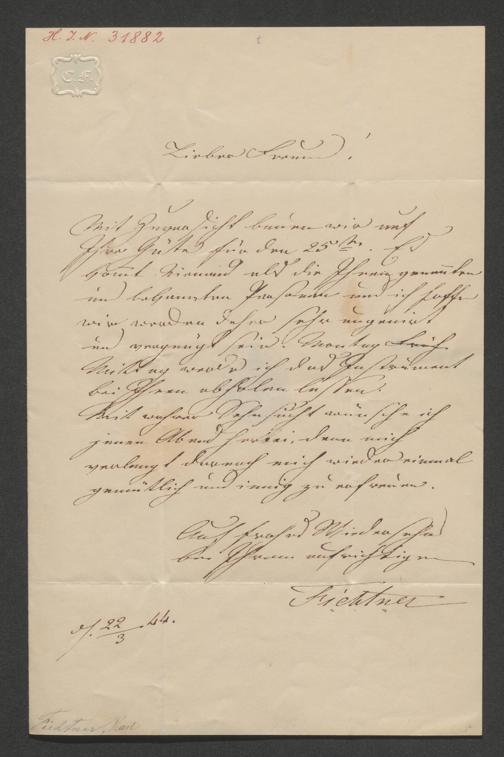 H. I. N. 31882
C. F.
Lieber Freund!
Mit Zuversicht bauen wir auf
Ihre Güte für den 25ten. Es
kommt Niemand als die Ihnen genannten
und bekannten Personen und ich hoffe
wir werden daher sehr ungenirt
und vergnügt sein. Montag Früh
Mittag werde ich das Instrument
bei Ihnen abholen lassen.
Mit wahrer Sehnsucht wünsche ich
jenen Abend herbei, denn mich
verlangt darnach mich wieder einmal
gemütlich und innig zu erfreuen.
Auf frohes Wiedersehn
bei Ihrem aufrichtigen
Fichtner
22/3 .44.
Fichtner, Karl